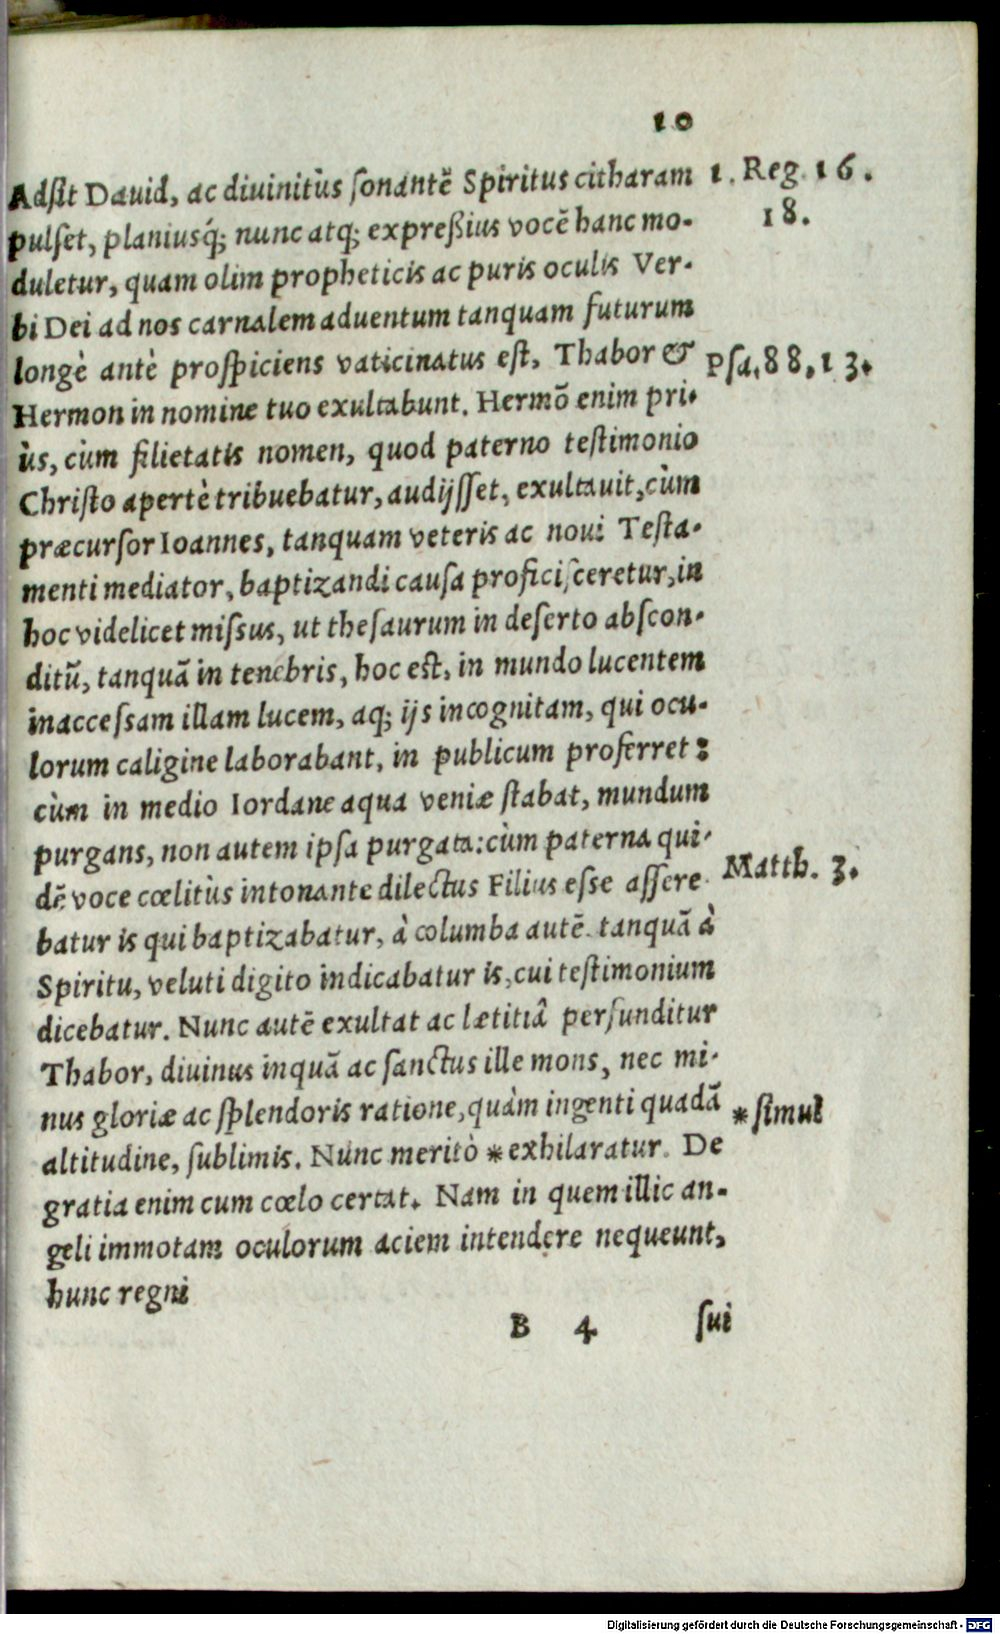 10
Adſit Dauid, ac diuinitùs ſonantē Spiritus citharam 1. Reg. 16.
pulſet, planiusq́; nunc atq; expreßius vocē hanc mo- 18.
duletur, quam olim propheticis ac puris oculis Ver-
bi Dei ad nos carnalem aduentum tanquam futurum
longè antè proſpiciens vaticinatus eſt, Thabor & Pſa. 88, 13.
Hermon in nomine tuo exultabunt. Hermō enim pri-
ùs, cùm filietatis nomen, quod paterno teſtimonio
Chriſto apertè tribuebatur, audijſſet, exultauit, cùm
præcurſor Ioannes, tanquam veteris ac noui Teſta-
menti mediator, baptizandi cauſa proficiſceretur, in
hoc videlicet miſsus, ut theſaurum in deſerto abſcon-
ditū, tanquā in tenebris, hoc eſt, in mundo lucentem
inacceſsam illam lucem, aq; ijs incognitam, qui ocu-
lorum caligine laborabant, in publicum proferret:
cùm in medio Iordane aqua veniæ ſtabat, mundum
purgans, non autem ipſa purgata: cùm paterna qui-
dē voce cœlitùs intonante dilectus Filius eſse aſſere- Matth. 3.
batur is qui baptizabatur, à columba autē tanquā à
Spiritu, veluti digito indicabatur is, cui teſtimonium
dicebatur. Nunc autē exultat ac lætitiâ perfunditur
Thabor, diuinus inquā ac ſanctus ille mons, nec mi-
nus gloriæ ac ſplendoris ratione, quàm ingenti quadā *ſimul
altitudine, ſublimis. Nunc meritò *exhilaratur. De
gratia enim cum cœlo certat. Nam in quem illic an-
geli immotam oculorum aciem intendere nequeunt,
hunc regni
B 4 ſui
Digitalisierung gefördert durch die Deutsche Forschungsgemeinschaft - DFG